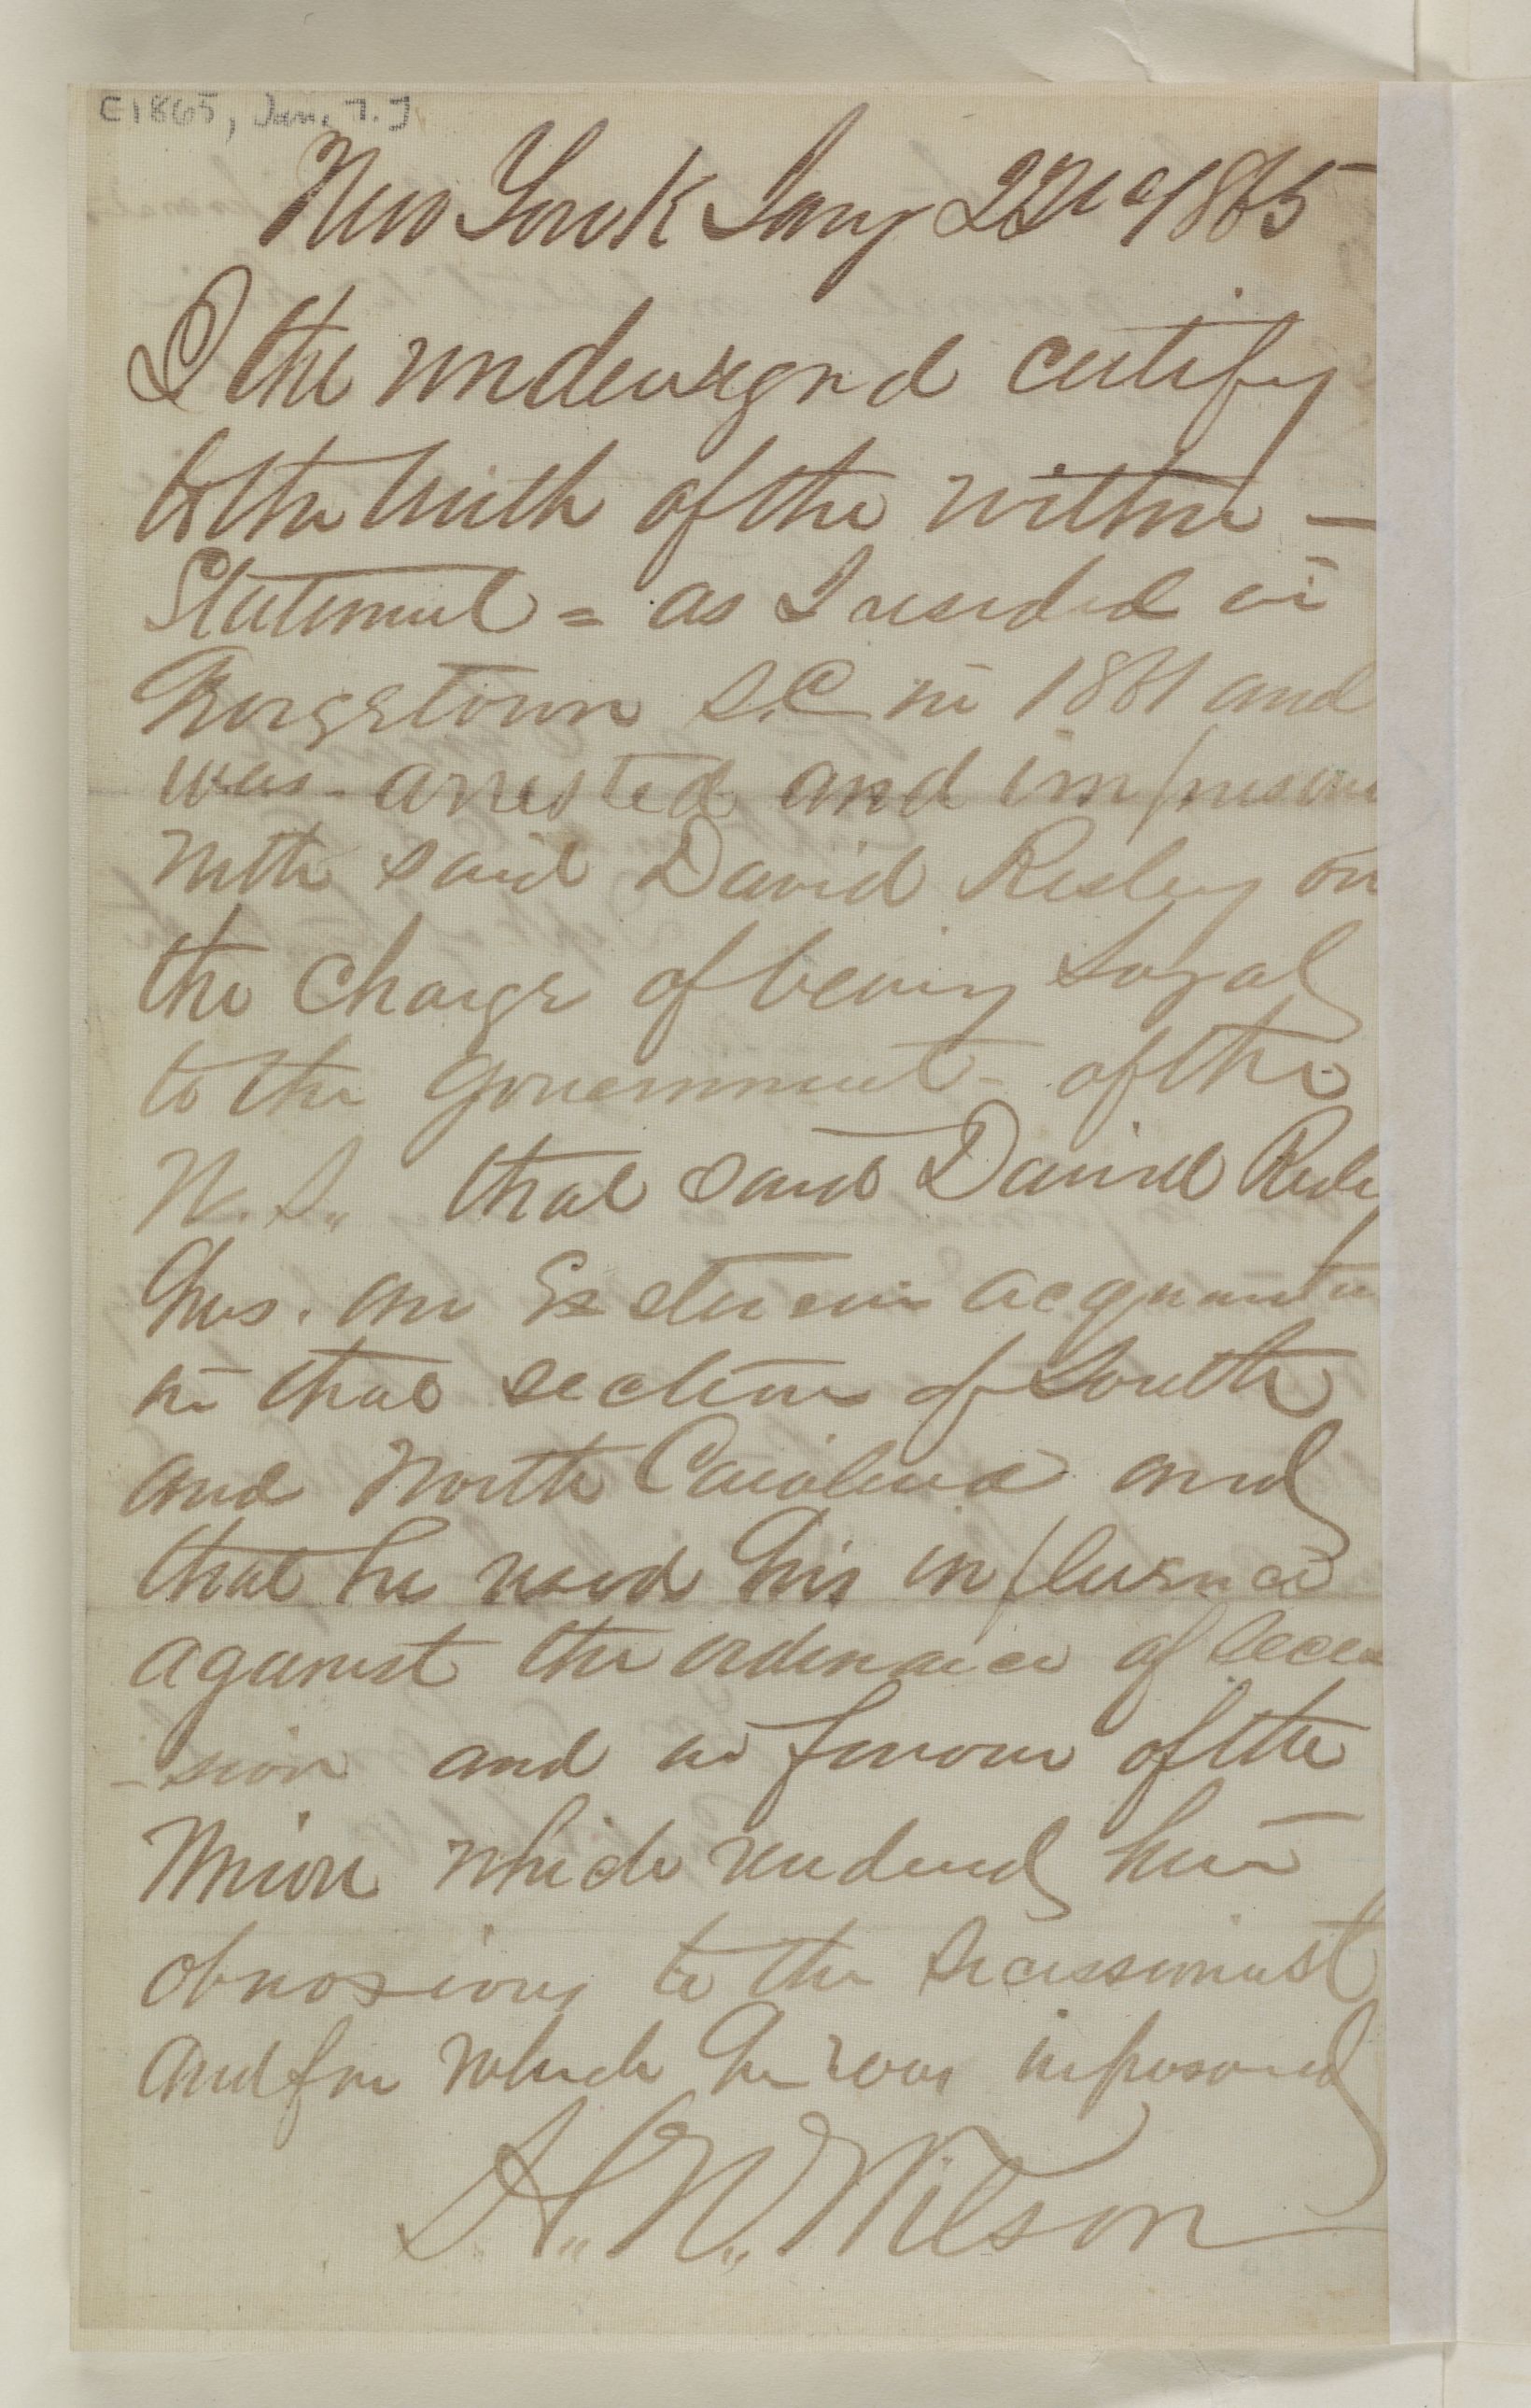 [1865, Jan. 7.]
New York Jany 22nd 1865
I the undersignd certify
to the truth of the within -
Statement = as I resided in
Georgetown S.C in 1861 and
was arrested and imprison
with said David Risley on
the Charge of being Loyal
to the Government of the
U.S.. that said David Risley
has. an Extensive acquaintan
in that section of South
and North Carolina and
that he used his influence
against the ordinance of Seces
-sion and in favour of the
Union which rendered him
obnoxious to the Secessionist
and for which he was
W. Wilson